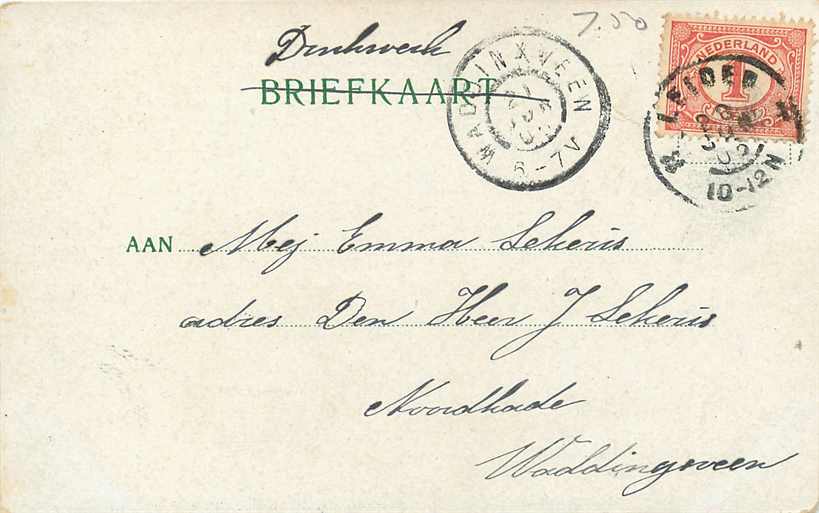 7.50
Drukwerk
BRIEFKAART
WADDINXVEEN
6-7V
NEDERLAND
1
LEIDEN
10-12N
AAN Mej Emma Sekeris
adres Den Heer J Sekeris
Noordkade
Waddingsveen